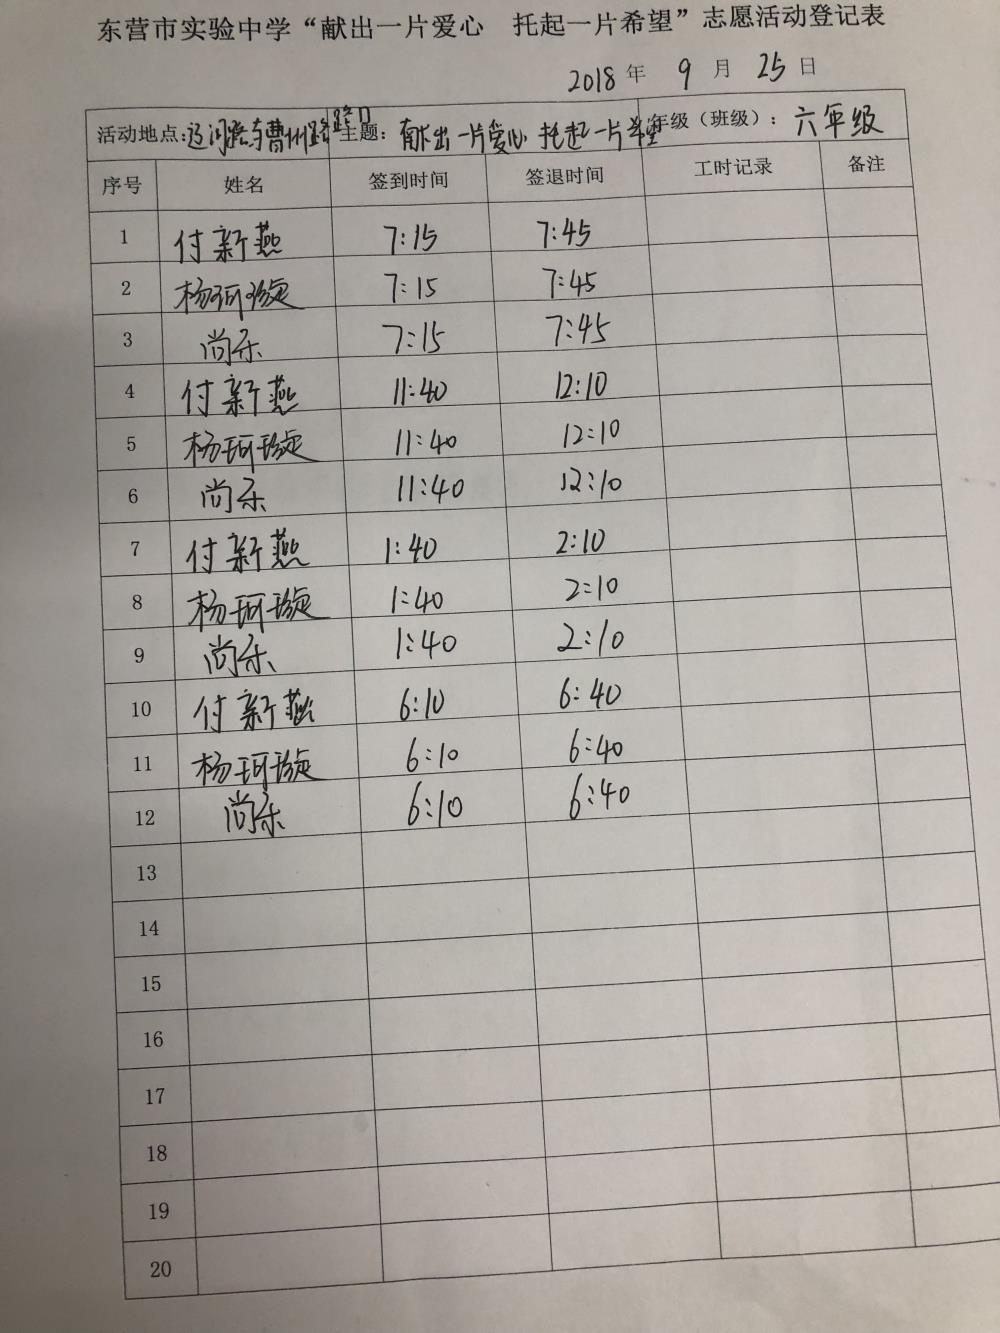 东营市实验中学“献出一片爱心 托起一片希望”志愿活动登记表
2018 年 9 月 25 日
活动地点：辽河路与曹州路路口 主题：献出一片爱心 托起一片希望 年级（班级）：六年级
序号 姓名 签到时间 签退时间 工时记录 备注
1 付新燕 7:15 7:45
2 杨珂璇 7:15 7:45
3 尚乐 7:15 7:45
4 付新燕 11:40 12:10
5 杨珂璇 11:40 12:10
6 尚乐 11:40 12:10
7 付新燕 1:40 2:10
8 杨珂璇 1:40 2:10
9 尚乐 1:40 2:10
10 付新燕 6:10 6:40
11 杨珂璇 6:10 6:40
12 尚乐 6:10 6:40
13
14
15
16
17
18
19
20